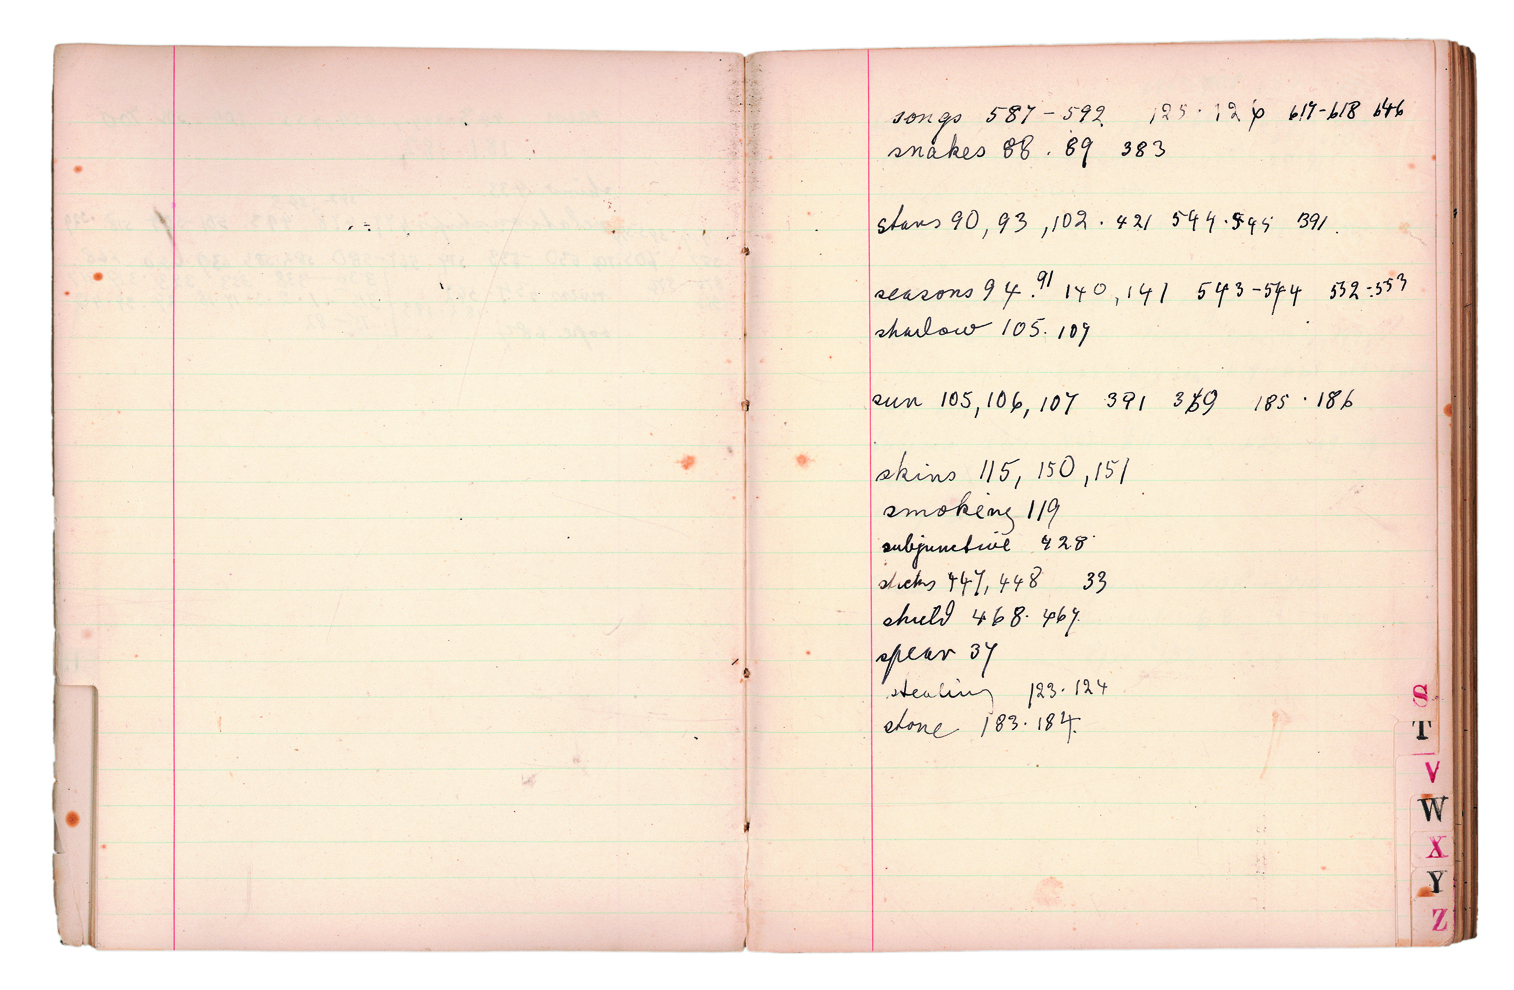 songs 587-592 125.126 617-618 646
snakes 88. 89 383
stars 90, 93, 102. 421 544.545 391.
seasons 94.91 140, 141 543-544 552-553
shadow 105. 109
sun 105, 106, 107 391 369 185. 186
skins 115, 150, 151
smoking 119
subjunctive 428
sticks 447, 448 33
shield 468. 467.
spear 37
stealing 123. 124
stone 183. 184.
S
T
V
W
X
Y
Z